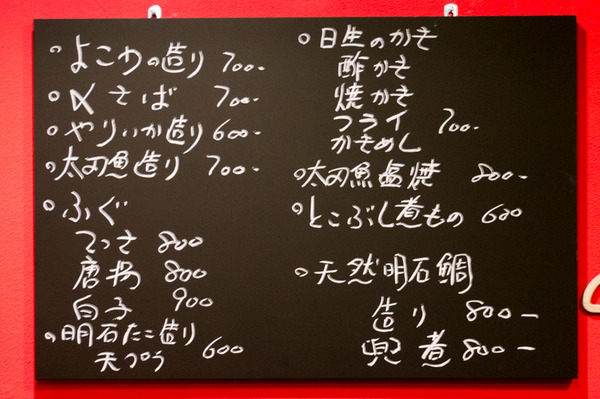 ○よこわの造り 700-
○〆さば 700-
○やりいか造り 600-
○太刀魚造り 700-
○ふぐ
てっさ 800
唐揚 800
白子 900
○明石たこ造り
天プラ 600
○日生のかき
酢かき
焼かき
フライ 700-
かきめし
○太刀魚塩焼 800-
○とこぶし煮もの 600
○天然明石鯛
造り 800-
兜煮 800-